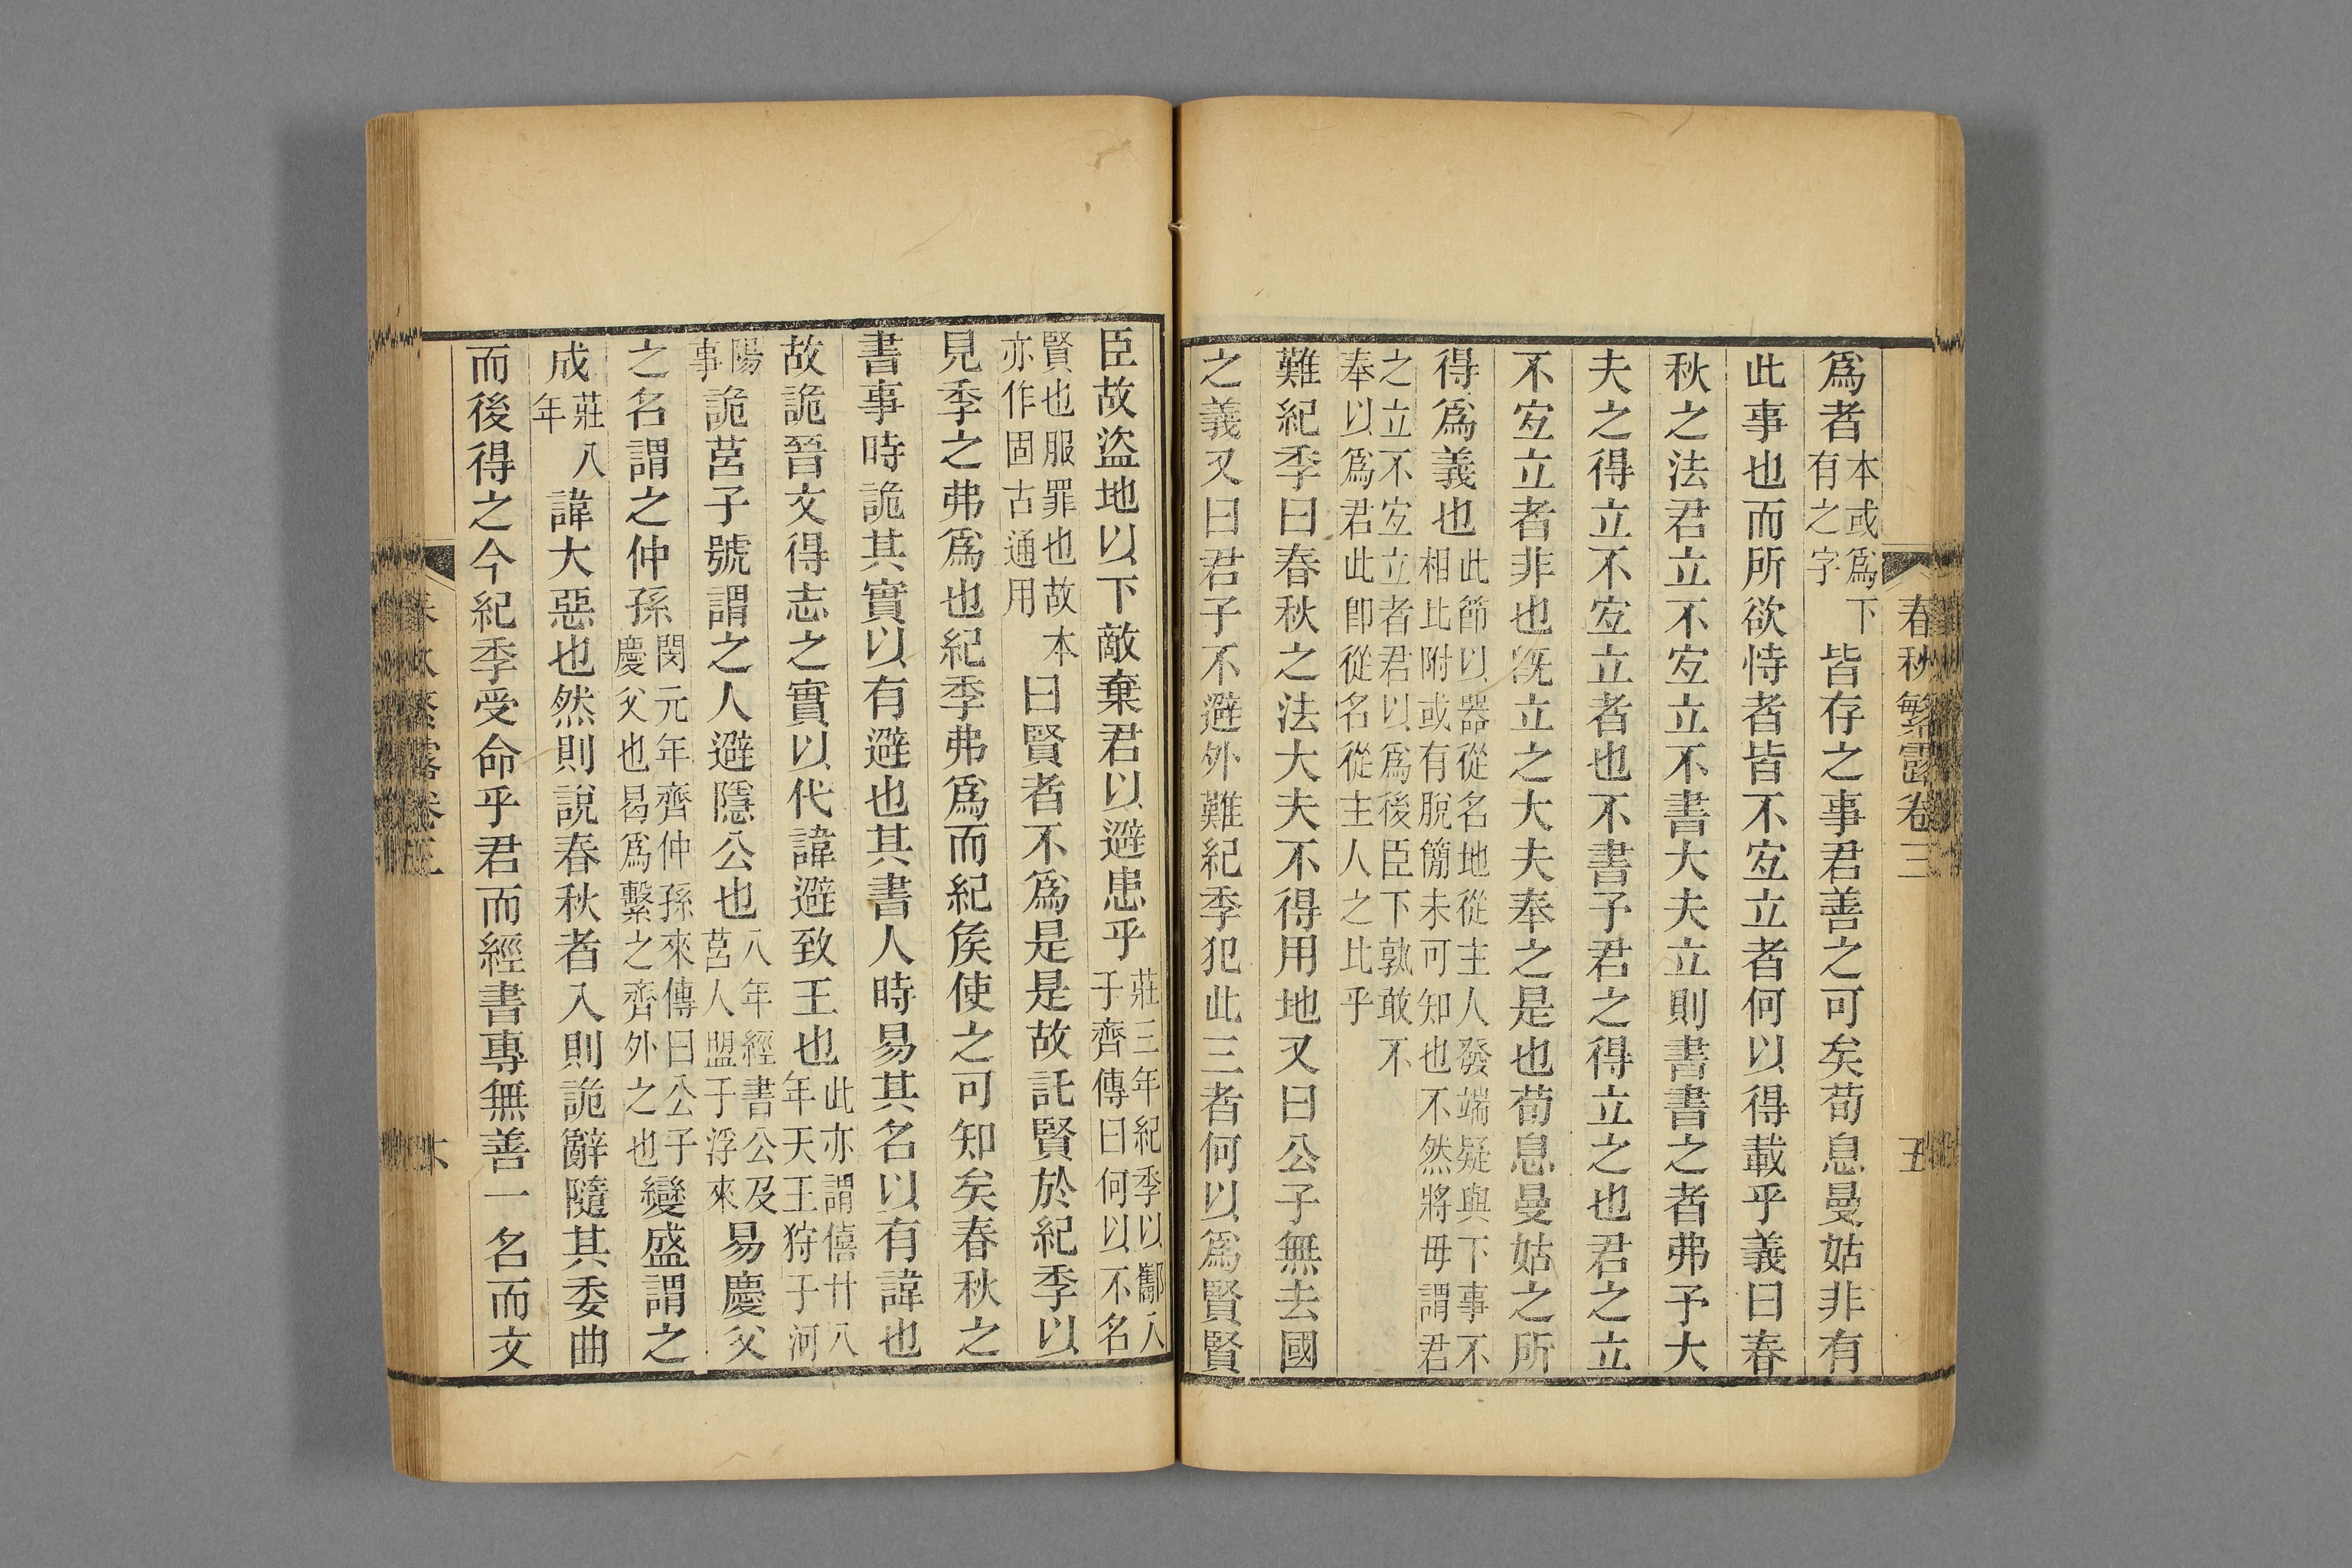 春秋繁露卷三 五
爲者本或爲下有之字皆存之事君善之可矣荀息曼姑非有
此事也而所欲恃者皆不宐立者何以得載乎義曰春
秋之法君立不宐立不書大夫立則書書之者弗予大
夫之得立不宐立者也不書予君之得立之也君之立
不宐立者非也旣立之大夫奉之是也荀息曼姑之所
得爲義也此節以器從名地從主人發端疑與下事不相比附或有脫簡未可知也不然將毋謂君
之立不宐立者君以爲後臣下孰敢不奉以爲君此卽從名從主人之比乎
難紀季曰春秋之法大夫不得用地又曰公子無去國
之義又曰君子不避外難紀季犯此三者何以爲賢賢
臣故盜地以下敵棄君以避患乎莊三年紀季以酅入于齊傳曰何以不名
賢也服罪也故本亦作固古通用曰賢者不爲是是故託賢於紀季以
見季之弗爲也紀季弗爲而紀矦使之可知矣春秋之
書事時詭其實以有避也其書人時易其名以有諱也
故詭晉文得志之實以代諱避致王也此亦謂僖廿八年天王狩于河
陽事詭莒子號謂之人避隱公也八年經書公及莒人盟于浮來易慶父
之名謂之仲孫閔元年齊仲孫來傳曰公子慶父也曷爲繫之齊外之也變盛謂之
成莊八年諱大惡也然則說春秋者入則詭辭隨其委曲
而後得之今紀季受命乎君而經書專無善一名而文
春秋繁露卷三 六